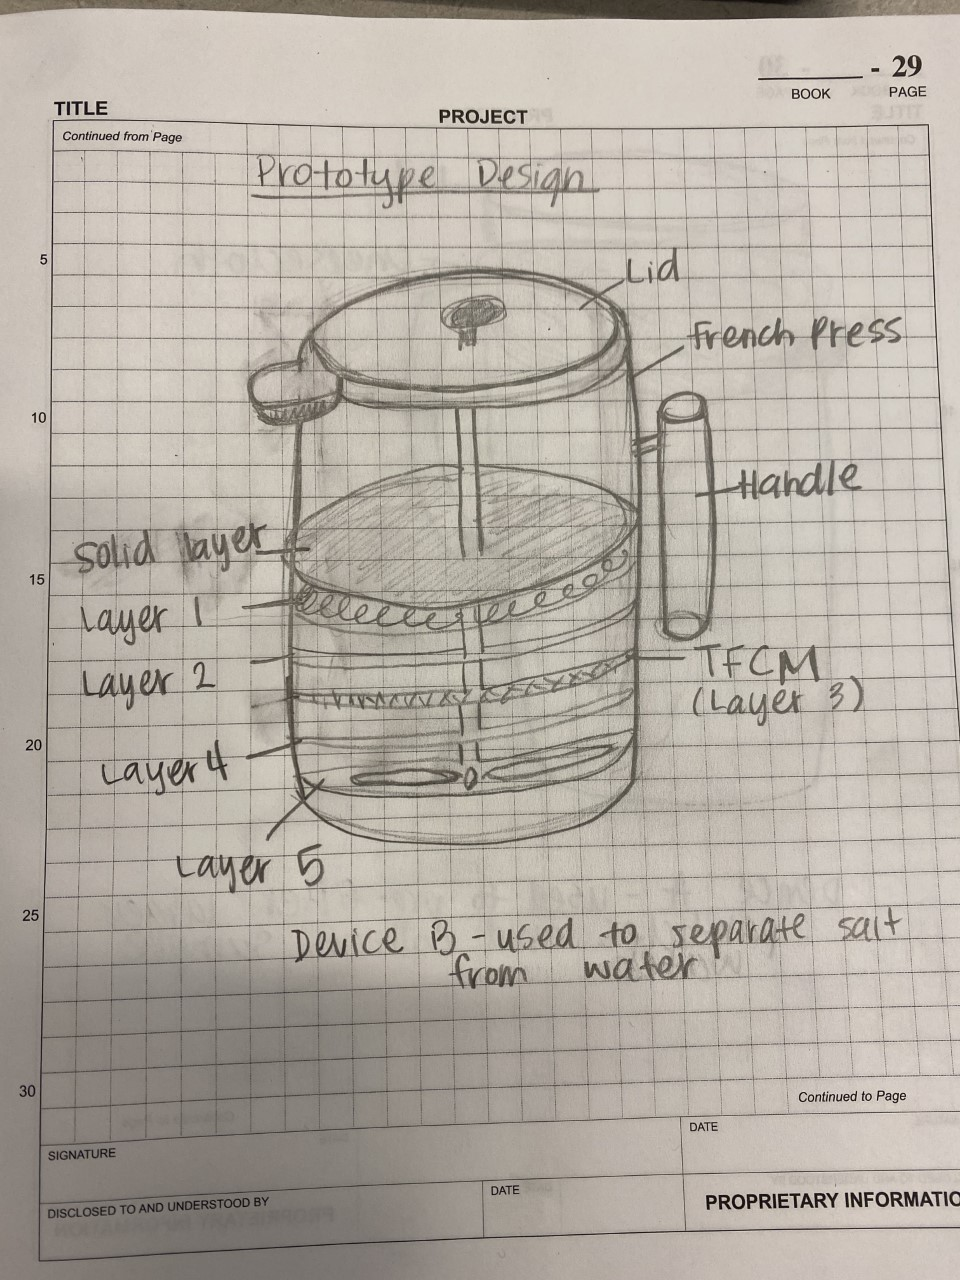 - 29
BOOK PAGE
TITLE
PROJECT
Continued from Page
Prototype Design
5
Lid
French Press
10
Handle
Solid layer
15
Layer 1
TFCM
(Layer 3)
Layer 2
20
Layer 4
Layer 5
25
Device B - used to separate salt
from water
30
Continued to Page
SIGNATURE
DATE
DISCLOSED TO AND UNDERSTOOD BY
DATE
PROPRIETARY INFORMATIO